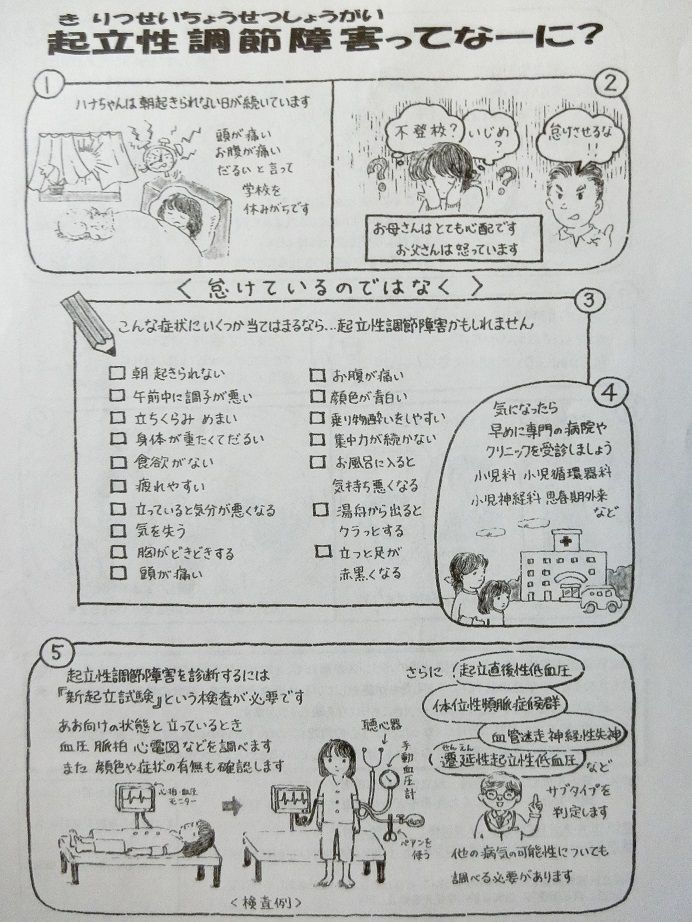 きりつせいちょうせつしょうがい
起立性調節障害ってなーに？
①
ハナちゃんは朝起きられない日が続いています
頭が痛い
お腹が痛い
だるいと言って
学校を
休みがちです
②
不登校？
いじめ？
怠けさせるな!!
お母さんはとても心配です
お父さんは怒っています
〈怠けているのではなく〉
③
こんな症状にいくつか当てはまるなら…起立性調節障害かもしれません
□ 朝起きられない
□ 午前中に調子が悪い
□ 立ちくらみ めまい
□ 身体が重たくてだるい
□ 食欲がない
□ 疲れやすい
□ 立っていると気分が悪くなる
□ 気を失う
□ 胸がどきどきする
□ 頭が痛い
□ お腹が痛い
□ 顔色が青白い
□ 乗り物酔いをしやすい
□ 集中力が続かない
□ お風呂に入ると
気持ち悪くなる
□ 湯舟から出ると
クラっとする
□ 立つと足が
赤黒くなる
④
気になったら
早めに専門の病院や
クリニックを受診しましょう
小児科 小児循環器科
小児神経科 思春期外来
など
⑤
起立性調節障害を診断するには
『新起立試験』という検査が必要です
あお向けの状態と立っているとき
血圧 脈拍 心電図などを調べます
また 顔色や症状の有無も確認します
心拍・血圧
モニター
聴心器
手動血圧計
ペアンを
使う
〈検査例〉
さらに
起立直後性低血圧
体位性頻脈症候群
血管迷走神経性失神
せんえん
遷延性起立性低血圧
など
サブタイプを
判定します
他の病気の可能性についても
調べる必要があります